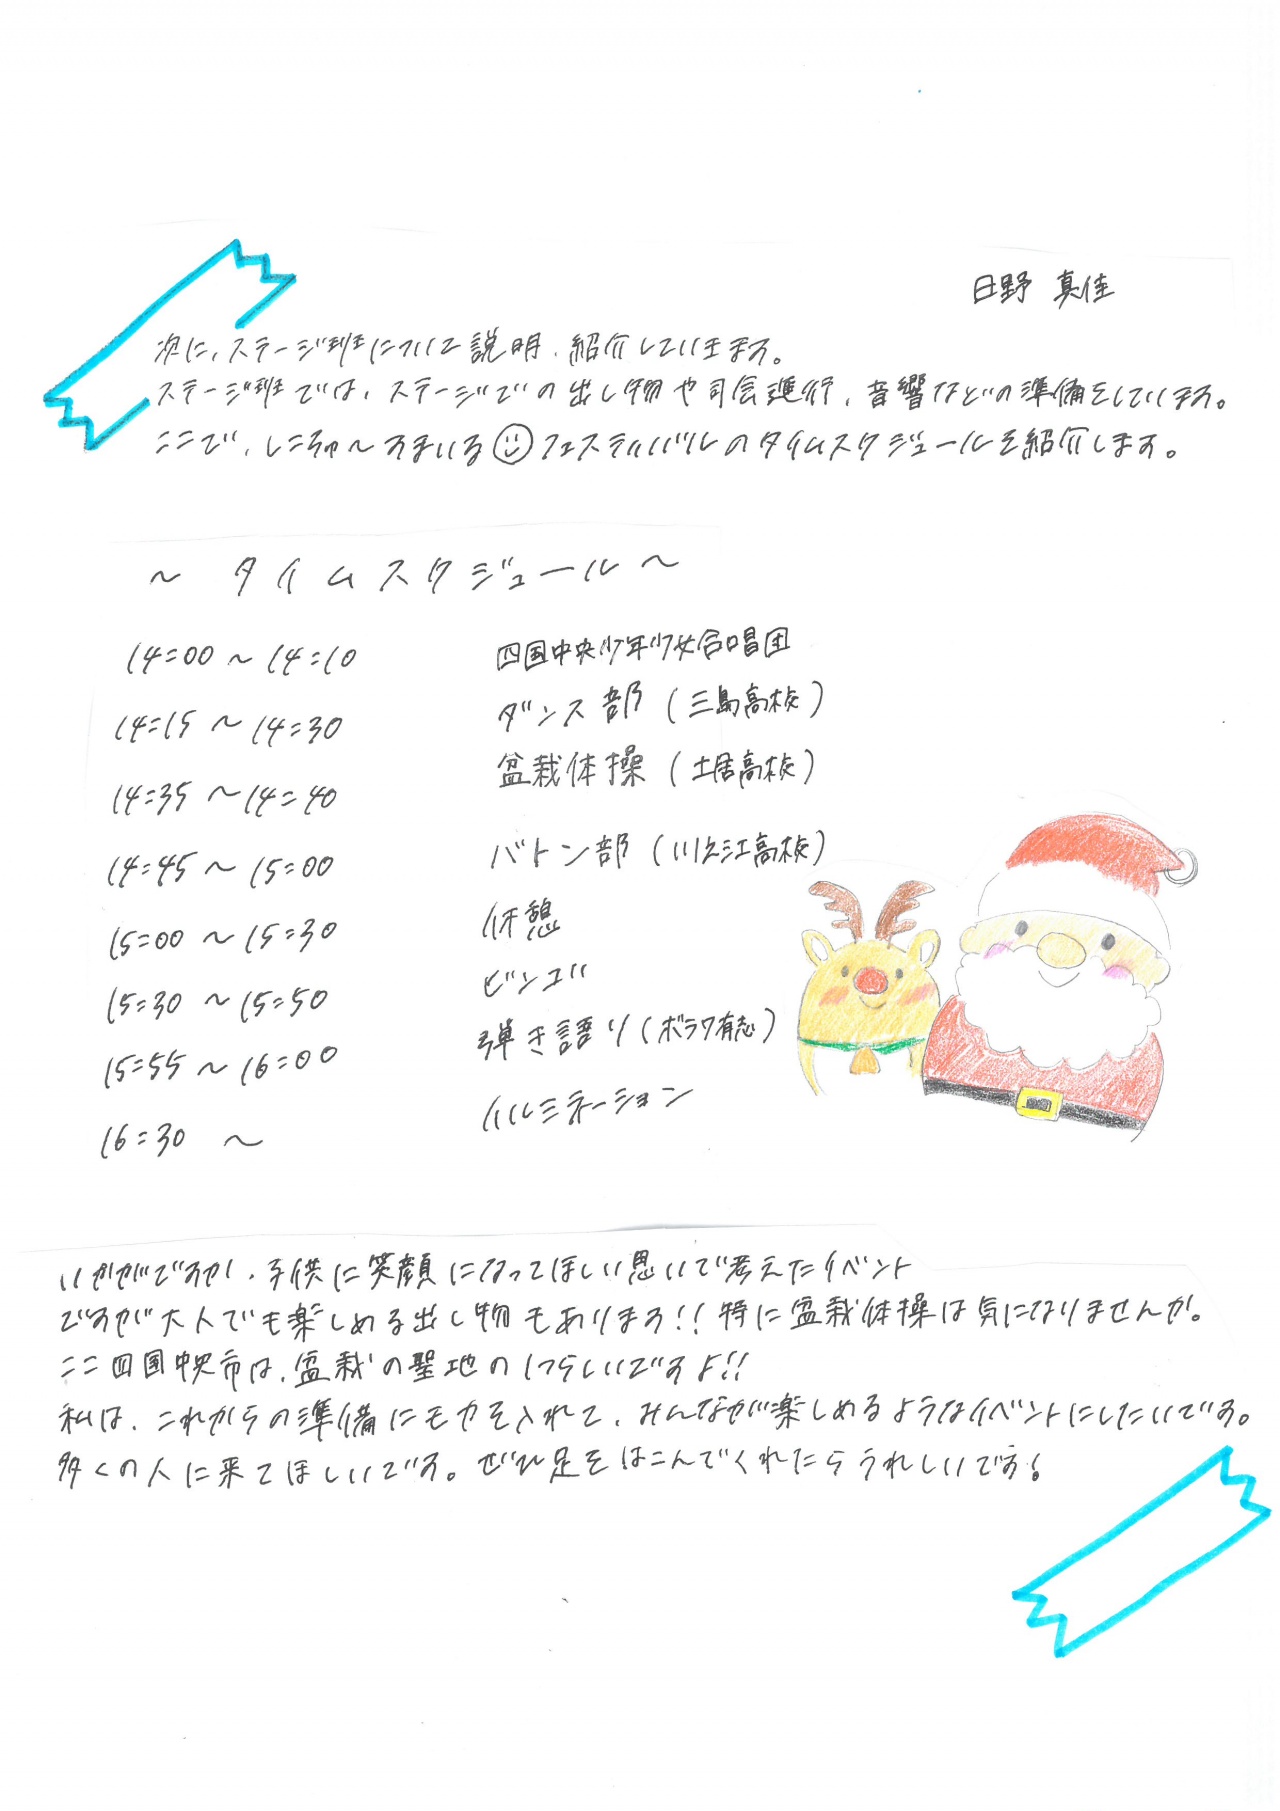 日野 真佳
次に、ステージ班について説明、紹介していきます。
ステージ班では、ステージでの出し物や司会進行、音響などの準備をしています。
ここで、しこちゅ〜すまいる☺フェスティバルのタイムスケジュールを紹介します。
〜 タイムスケジュール 〜
14:00 〜 14:10 四国中央少年少女合唱団
14:15 〜 14:30 ダンス部 (三島高校)
14:35 〜 14:40 盆栽体操 (土居高校)
14:45 〜 15:00 バトン部 (川之江高校)
15:00 〜 15:30 休憩
15:30 〜 15:50 ビンゴ
15:55 〜 16:00 弾き語り (ボラワ有志)
16:30 〜 イルミネーション
いかがですか、子供に笑顔になってほしい思いで考えたイベント
ですが大人でも楽しめる出し物もあります!! 特に盆栽体操は気になりませんか。
ここ四国中央市は、盆栽の聖地のひつらしいですよ!!
私は、これからの準備にも力を入れて、みんなが楽しめるようなイベントにしたいです。
多くの人に来てほしいです。ぜひ足をはこんでくれたらうれしいです!